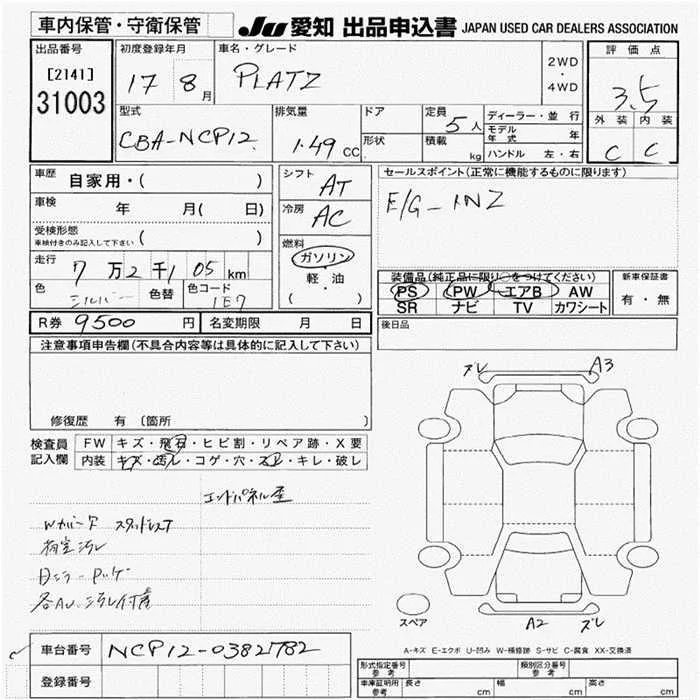 車内保管・守衛保管
JU 愛知 出品申込書 JAPAN USED CAR DEALERS ASSOCIATION
出品番号
[2141]
31003
初度登録年月
17 8 月
車名・グレード
PLATZ
2WD
・
4WD
評価点
3.5
外装 内装
C C
型式
CBA-NCP12
排気量
1.49 CC
ドア
形状
定員
5 人
積載
kg
ディーラー・並行
モデル年式 年
ハンドル 左・右
車歴 自家用・( )
車検 年 月( 日)
受検形態
車検付きのみ記入して下さい ( )
走行
7 万 2 千 105 km
色 シルバー 色替 色コード 1E7
シフト AT
冷房 AC
燃料
ガソリン
・
軽・油
・
( )
セールスポイント(正常に機能するものに限ります)
E/G-1NZ
装備品(純正品に限り○をつけてください)
PS PW エアB AW
SR ナビ TV カワシート
新車保証書
有・無
R券 9500 円 名変期限 月 日
後日品
注意事項申告欄(不具合内容等は具体的に記入して下さい)
修復歴 有 (箇所 )
検査員記入欄
FW キズ・飛石・ヒビ割・リペア跡・X要
内装 キズ・汚レ・コゲ・穴・スレ・キレ・破レ
エンドパネル歪
Wカバー
汚レ
ズレ A3
スペア
A2 ズレ
A-キズ E-エクボ U-凹み W-補修跡 S-サビ C-腐食 XX-交換済
車台番号 NCP12-0382782
登録番号
形式指定番号 参考 類別区分番号 参考
車庫証明用 参考 長さ cm 幅 cm 高さ cm